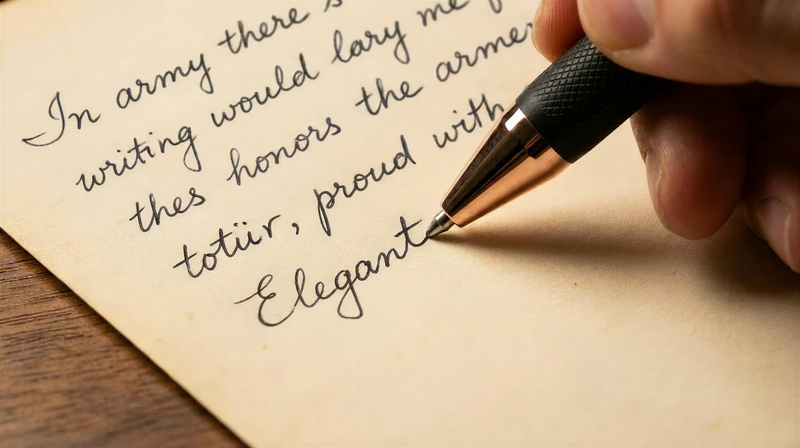 In army there s
writing would lary me f
thes honors the armer
totüir, proud with
Elegant